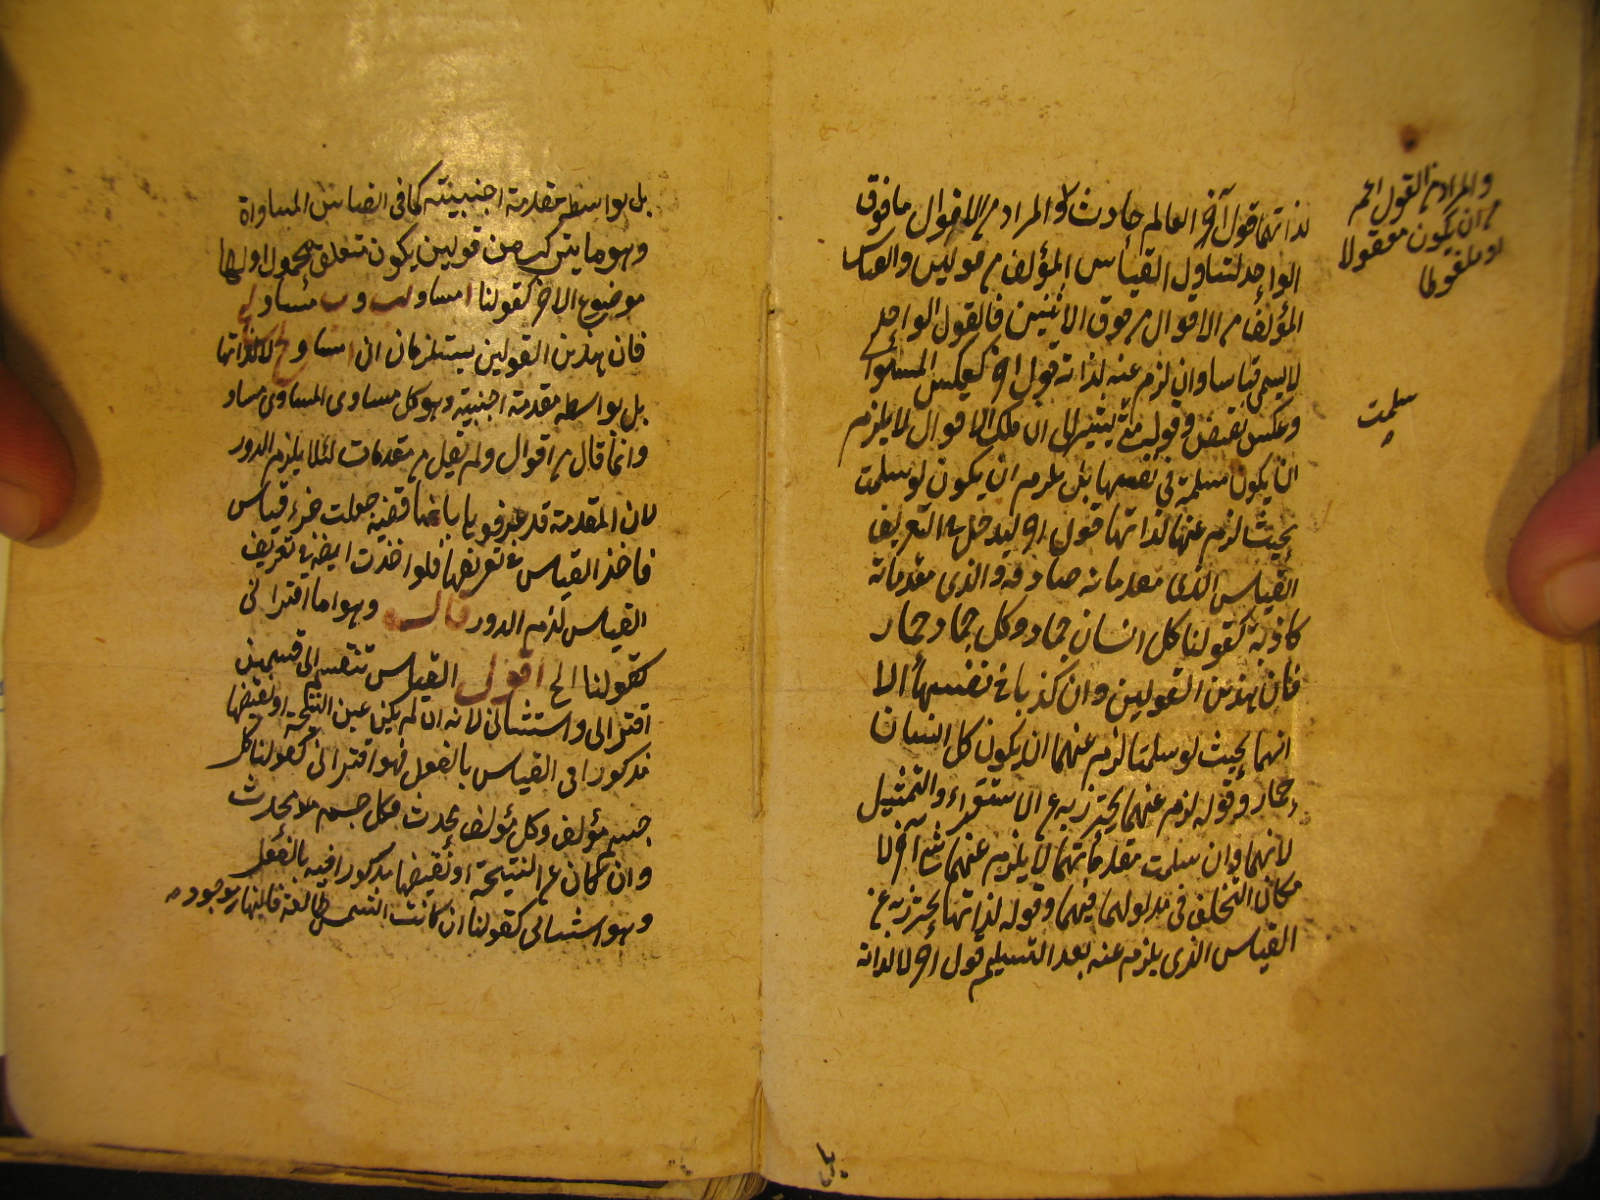 لذاتهما قول آخر العالم حادث والمراد من الاقوال ما فوق
الواحد لتناول القياس المؤلف من قولين والقياس
المؤلف من الاقوال من فوق الاثنين فالقول الواحد
لا يسمى قياسا وان لزم عنه لذاته قول اخر كعكس المستوى
وعكس نقيض وقوله متى يشير الى ان تلك الاقوال لا يلزم
ان يكون مسلمة في نفسها بل يلزم ان يكون لو سلمت
بحيث لزم عنها لذاتها قول اخر ليدخل في التعريف
القياس الذى مقدماته صادقة والذى مقدماته
كاذبة كقولنا كل انسان جماد وكل جماد حمار
فان هذين القولين وان كذبا في نفسهما الا
انهما بحيث لو سلمتا لزم عنهما ان يكون كل انسان
حمار وقوله لزم عنهما يحترز به عن الاستقراء والتمثيل
لانهما وان سلمت مقدماتهما لا يلزم عنهما شئ آخر لا
مكان التخلف في مدلولهما فيهما وقوله لذاتها يحترز به عن
القياس الذى يلزم عنه بعد التسليم قول اخر لا لذاته
والمراد من القول اعم
من ان يكون معقولا
او ملفوظا
سلمت
بل
بل بواسطة مقدمة اجنبية كما في القياس المساواة
وهو ما يتركب من قولين يكون متعلق محمول اوليها
موضوع الاخر كقولنا ا مساو لب و ب مساو لج
فان هذين القولين يستلزمان ان ا مساو لج لا لذاتها
بل بواسطة مقدمة اجنبية وهو كل مساوى المساوى مساو
وانما قال من اقوال ولم يقل من مقدمات لئلا يلزم الدور
لان المقدمة قد عرفوها بانها قضية جعلت جزء قياس
فاخذ القياس في تعريفها فلو اخذت ايضا في تعريف
القياس لزم الدور قال وهو اما اقترانى
كقولنا الخ اقول القياس تنقسم الى قسمين
اقترانى واستثنائى لانه ان لم يكن عين النتيجة او نقيضها
مذكورا في القياس بالفعل فهو اقترانى كقولنا كل
جسم مؤلف وكل مؤلف محدث فكل جسم محدث
وان كان عين النتيجة او نقيضها مذكورا فيه بالفعل
وهو استثنائى كقولنا ان كانت الشمس طالعة فالنهار موجود